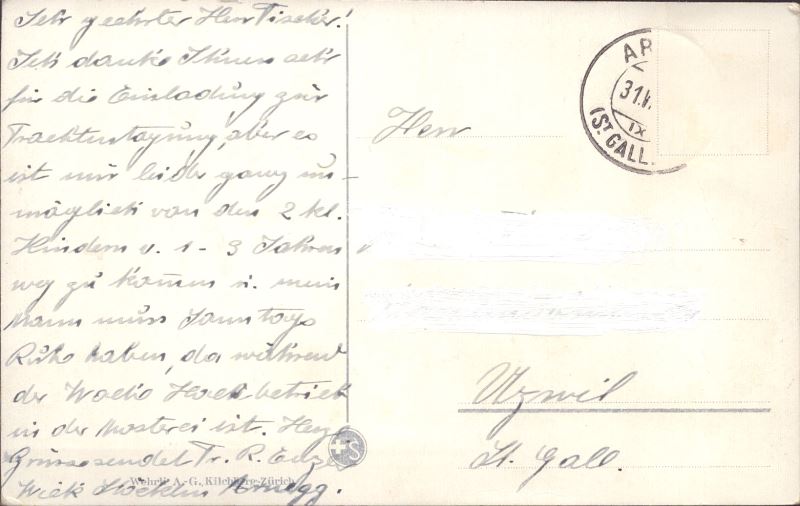 Sehr geehrter Herr Fischer!
Ich danke Ihnen sehr
für die Einladung zur
Trachtentagung, aber es
ist mir leider ganz un-
möglich von den 2 kl.
Kindern v. 1 - 3 Jahren
weg zu kommen u. mein
Mann muss Sonntags
Ruhe haben, da während
der Woche Hochbetrieb
in der Mosterei ist. Herzl.
Grüsse sendet Fr. R.
Arnegg.
Wehrli A.-G., Kilchberg-Zürich
Herr
Uzwil
St. Gall.
31.
IX
(ST. GALL.